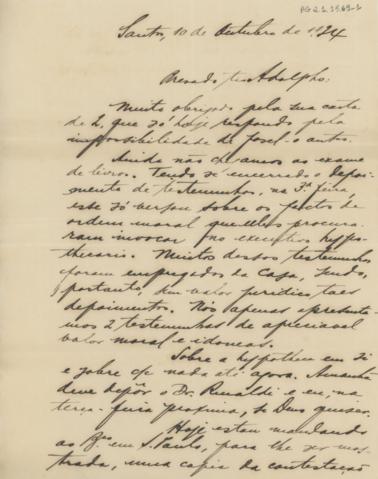 Santos, 10 de Outubro de 1924
Prezado Adolpho:
Muito obrigado pela sua carta
de 2, que só hoje respondo pela
impossibilidade de fazel-o antes.
Ainda não chegamos ao exame
de livros. Tendo se encerrado o depoi-
mento de testemunhas, na 3ª feira,
este só versou sobre os factos de
ordem moral que elles procura-
ram invocar no executivo hypo-
thecario. Muitas dessas testemunhas
foram empregados da Casa, sendo,
portanto, sem valor juridico taes
depoimentos. Nós apenas apresenta-
mos 2 testemunhas de apreciavel
valor moral e idoneas.
Sobre a hypotheca em si
e sobre nada até agora. Amanhã
deve depôr o Dr. Rinaldi e eu, na
terça-feira proxima, se Deus quizer.
Hoje estou mandando
ao em S. Paulo, para lhe ser mos-
trada, uma copia da contestação